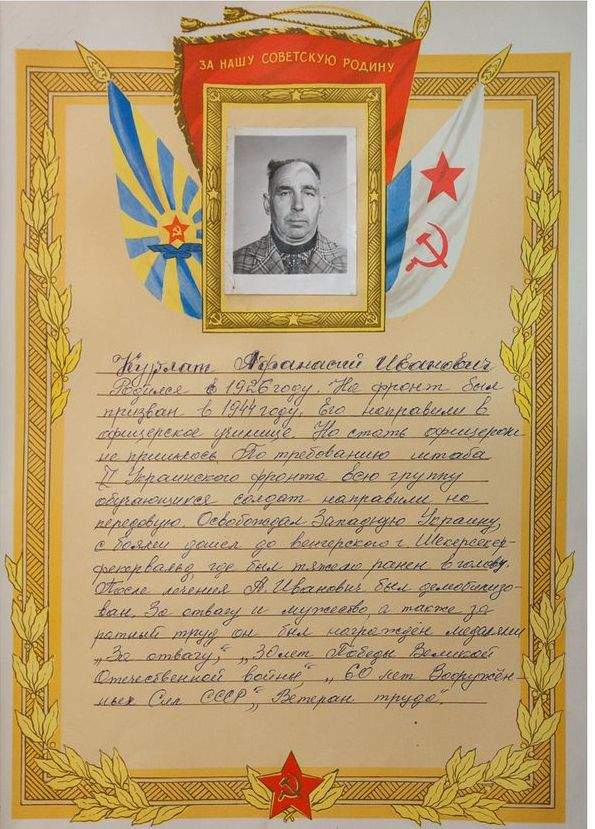 ЗА НАШУ СОВЕТСКУЮ РОДИНУ
Курлат Афанасий Иванович
Родился в 1926 году. На фронт был
призван в 1944 году. Его направили в
офицерское училище. Но стать офицером
не пришлось. По требованию штаба
Украинского фронта всю группу
обучающихся солдат направили на
передовую. Освобождал Западную Украину,
с боями дошел до венгерского г. Шекерсекер-
фекервальд, где был тяжело ранен в голову.
После лечения А. Иванович был демобилизо-
ван. За отвагу и мужество, а также за
ратный труд он был награждён медалями
„За отвагу", „30 лет Победы Великой
Отечественной войны", „60 лет Вооружён-
ных Сил СССР", „Ветеран труда".